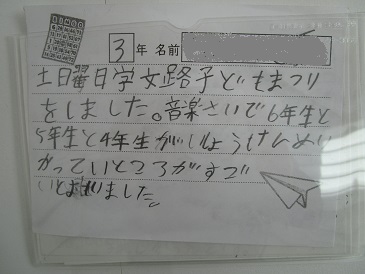 BINGO
3年 名前
土日曜日学女路子どもまつり
をしました。音楽さいで6年生と
5年生と4年生がいしょうけんめい
かっていところがすご
いとおもいました